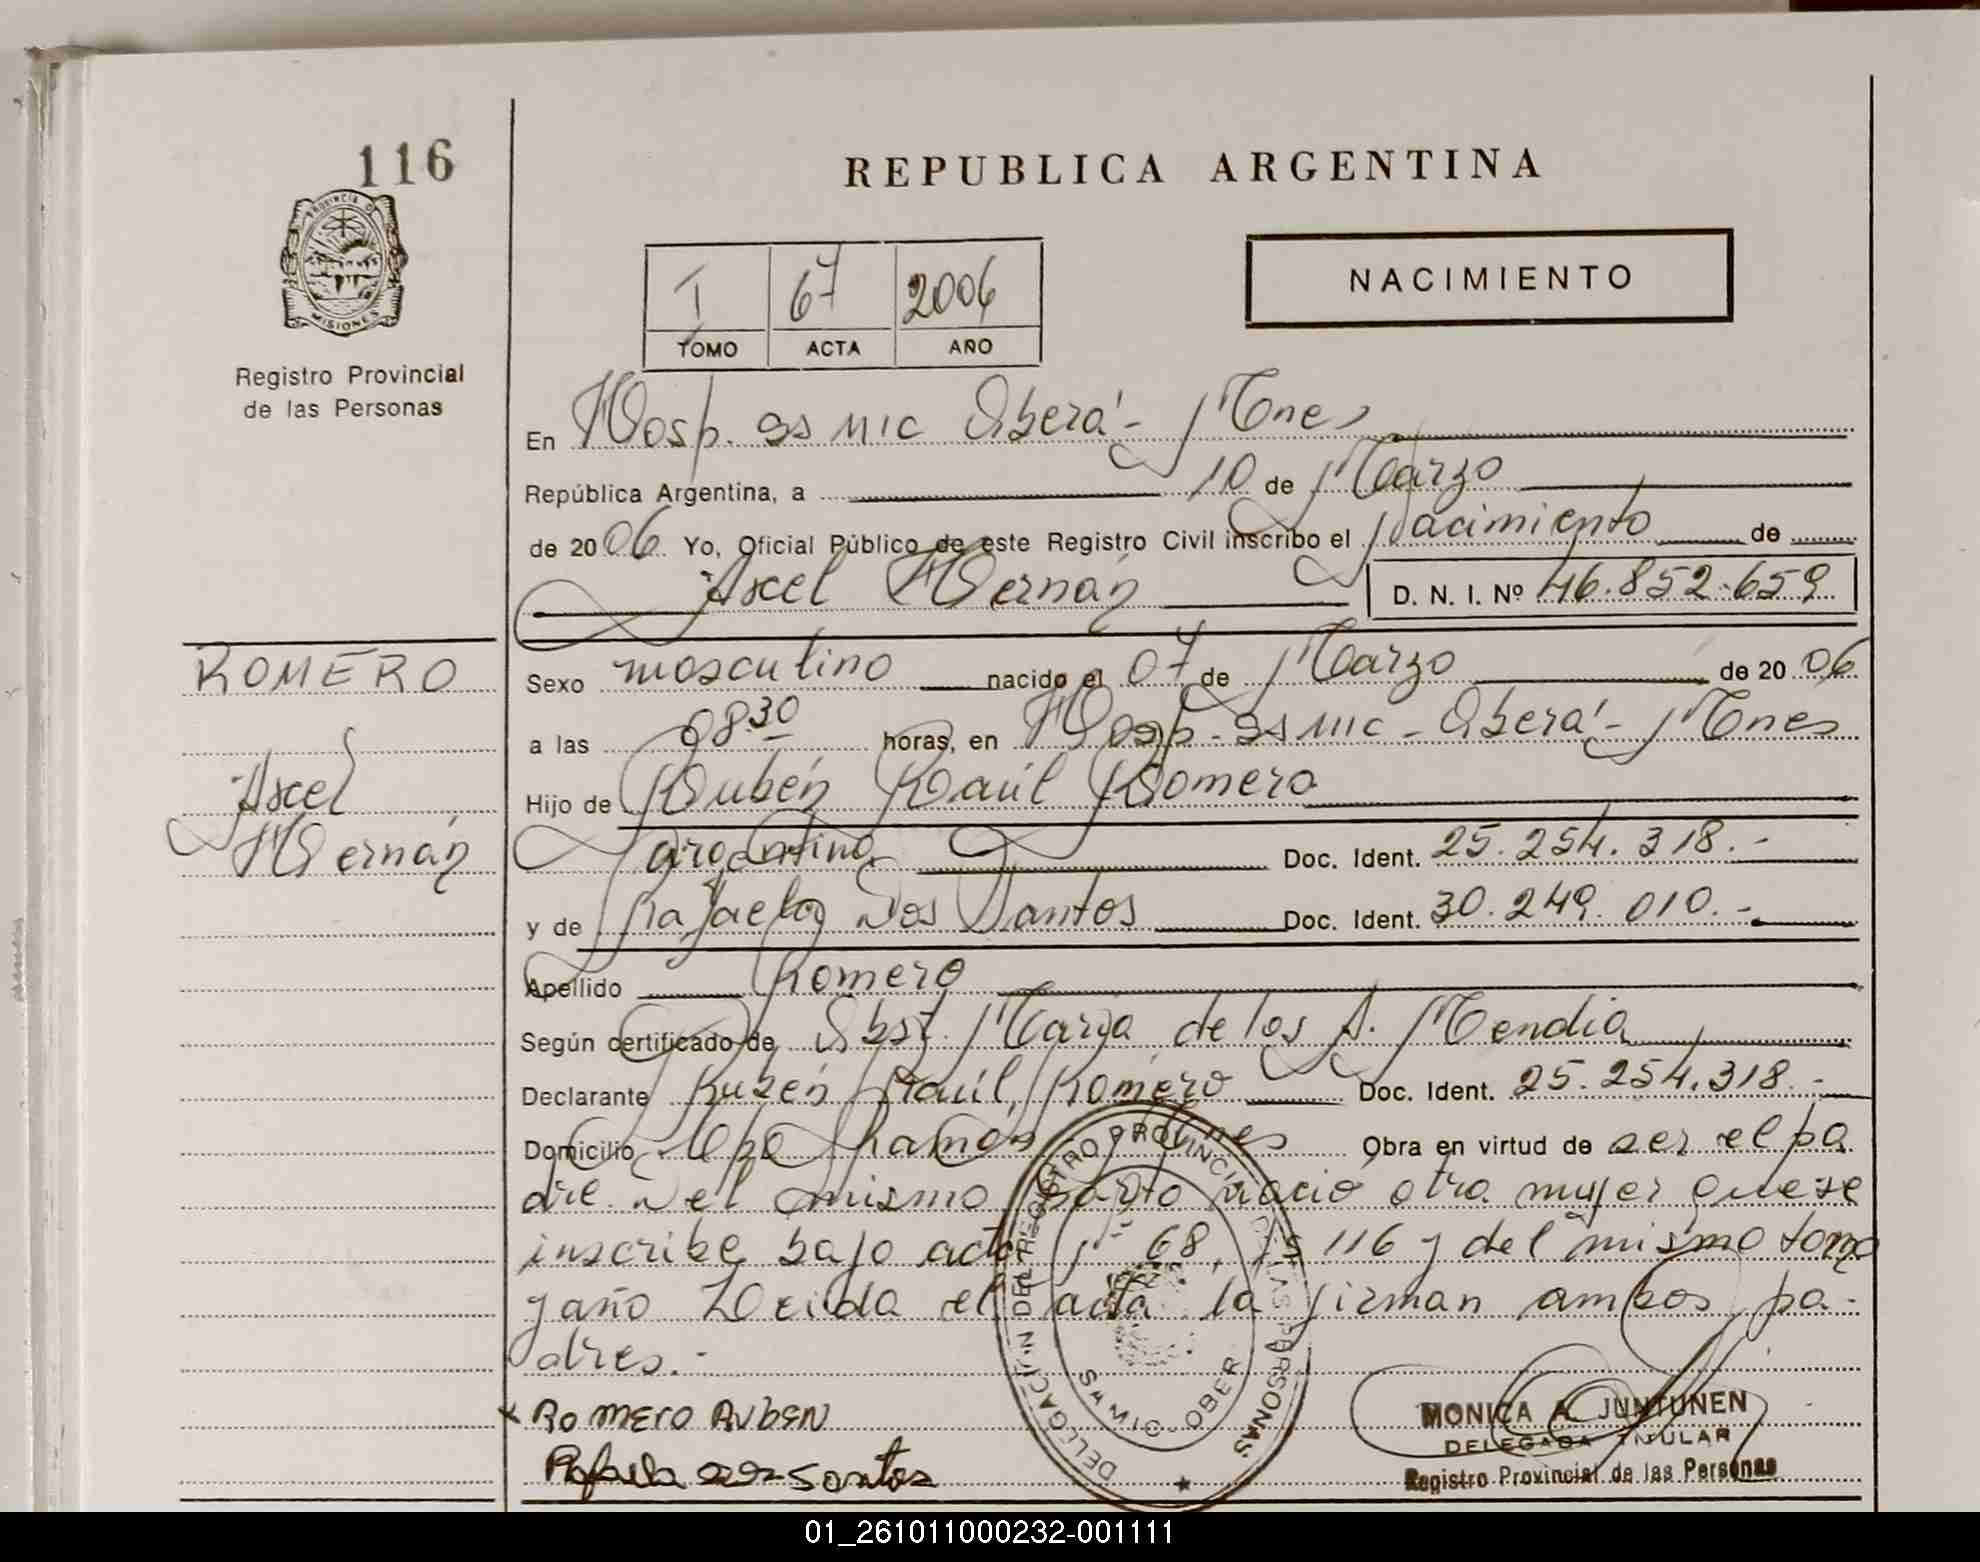 116
REPUBLICA ARGENTINA
PROVINCIA D
MISIONES
Registro Provincial
de las Personas
I 67 2006
TOMO ACTA AÑO
NACIMIENTO
En Hosp. SAMIC Oberá - Mnes
República Argentina, a 10 de Marzo
de 2006 Yo, Oficial Público de este Registro Civil inscribo el Nacimiento de
Axel Hernán D. N. I. Nº 46.852.659
ROMERO
Axel
Hernán
Sexo masculino nacido el 07 de Marzo de 2006
a las 08.30 horas, en Hosp. SAMIC - Oberá - Mnes
Hijo de Rubén Raúl Romero
argentino Doc. Ident. 25.254.318.-
y de Rafaela Dos Santos Doc. Ident. 30.249.010.-
Apellido Romero
Según certificado de Obst. María de los A. Mendia
Declarante Rubén Raúl Romero Doc. Ident. 25.254.318.-
Domicilio Cpo Ramón Mnes Obra en virtud de ser el pa
dre. Del mismo parto nació otra mujer que se
inscribe bajo acta Nº 68, Fº 116 y del mismo tomo
y año Leida el acta la firman ambos pa-
dres.-
ROMERO RUBEN
Rafaela dos Santos
DELEGACION DEL REGISTRO PROVINCIAL DE LAS PERSONAS
SAMIC OBER
MONICA A. JUNTUNEN
DELEGADA TITULAR
Registro Provincial de las Personas
01_261011000232-001111